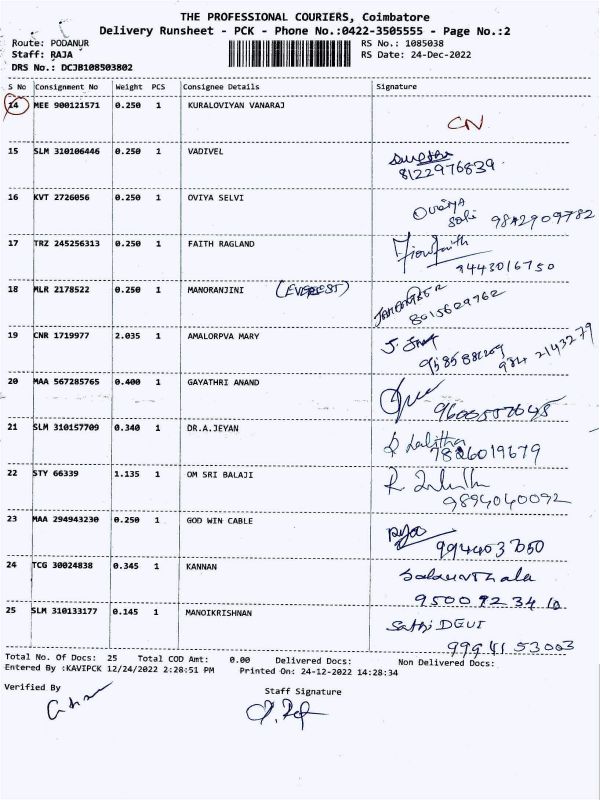 THE PROFESSIONAL COURIERS, Coimbatore
Delivery Runsheet - PCK - Phone No.:0422-3505555 - Page No.:2
Route: PODANUR RS No.: 1085038
Staff: RAJA RS Date: 24-Dec-2022
DRS No.: DCJB108503802
S No Consignment No Weight PCS Consignee Details Signature
14 MEE 900121571 0.250 1 KURALOVIYAN VANARAJ
CN
15 SLM 310106446 0.250 1 VADIVEL
8122976839
16 KVT 2726056 0.250 1 OVIYA SELVI
9842909782
17 TRZ 245256313 0.250 1 FAITH RAGLAND
9443016750
18 MLR 2178522 0.250 1 MANORANJINI (EVEREST)
8015629762
19 CNR 1719977 2.035 1 AMALORPVA MARY
984 2143279
20 MAA 567285765 0.400 1 GAYATHRI ANAND
21 SLM 310157709 0.340 1 DR.A.JEYAN
Lalitha
7826019679
22 STY 66339 1.135 1 OM SRI BALAJI
R.
9894040092
23 MAA 294943230 0.250 1 GOD WIN CABLE
24 TCG 30024838 0.345 1 KANNAN
9500923410
25 SLM 310133177 0.145 1 MANOIKRISHNAN
Sathi DEVI
9994153003
Total No. Of Docs: 25 Total COD Amt: 0.00 Delivered Docs: Non Delivered Docs:
Entered By :KAVIPCK 12/24/2022 2:28:51 PM Printed On: 24-12-2022 14:28:34
Verified By Staff Signature